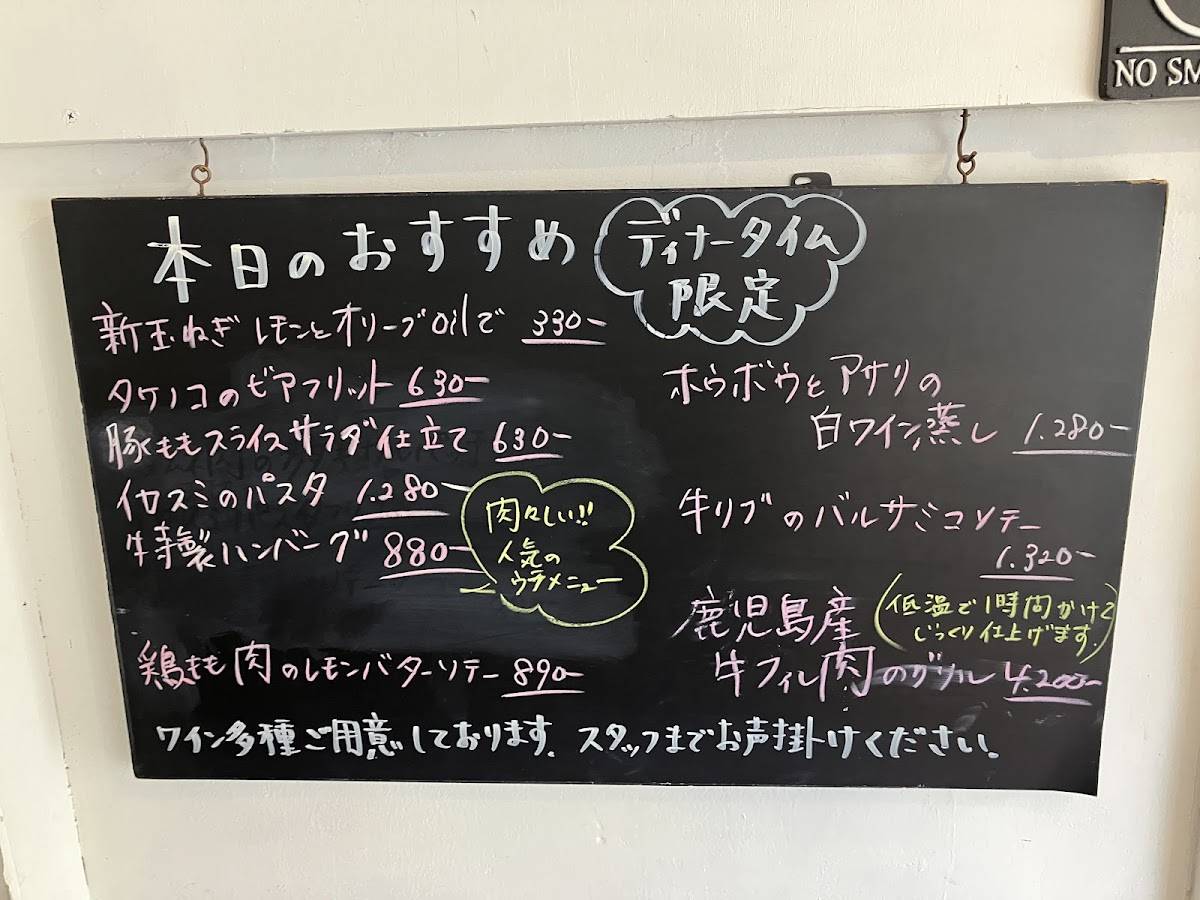 本日のおすすめ
ディナータイム
限定
新玉ねぎ レモンとオリーブoilで 330-
タケノコのビアフリット 630-
豚ももスライスサラダ仕立て 630-
イカスミのパスタ 1.280-
牛特製ハンバーグ 880-
肉々しい!!
人気の
ウラメニュー
鶏もも肉のレモンバターソテー 890-
ホウボウとアサリの
白ワイン蒸し 1.280-
牛リブのバルサミコソテー
1.320-
鹿児島産
(低温で1時間かけて
じっくり仕上げます。)
牛フィレ肉のグリル 4.200-
ワイン多種ご用意しております。スタッフまでお声掛けください。
NO SM